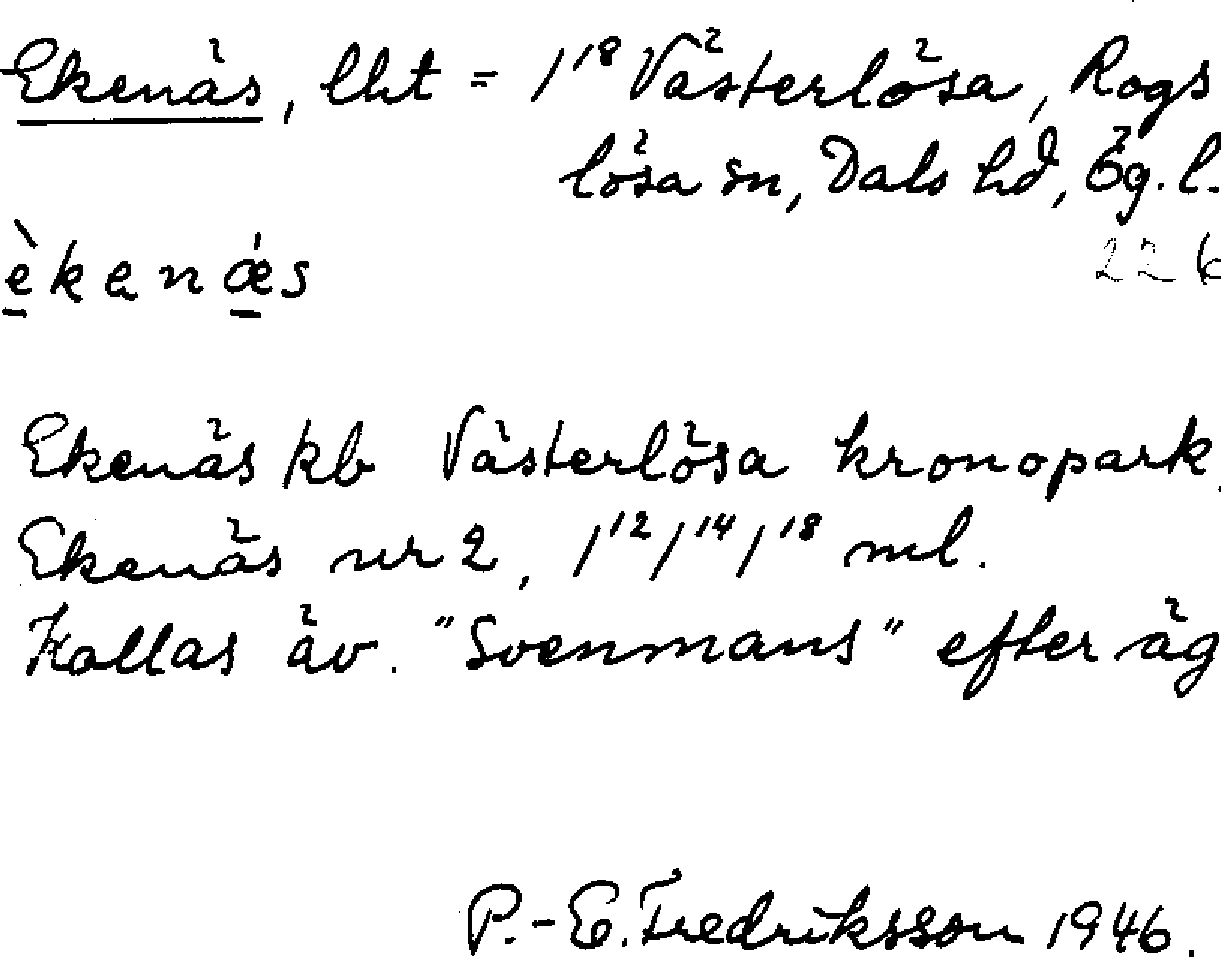 Ekenäs, lht = 1¹⁸ Västerlösa, Rogs
lösa sn, Dals hd, Ög. l.
226
èkenǽs
Ekenäs kb Västerlösa kronopark.
Ekenäs nr 2, 1¹²/¹⁴/¹⁸ ml.
Kallas äv. "Svenmans" efter äg
P.-E. Fredriksson 1946.